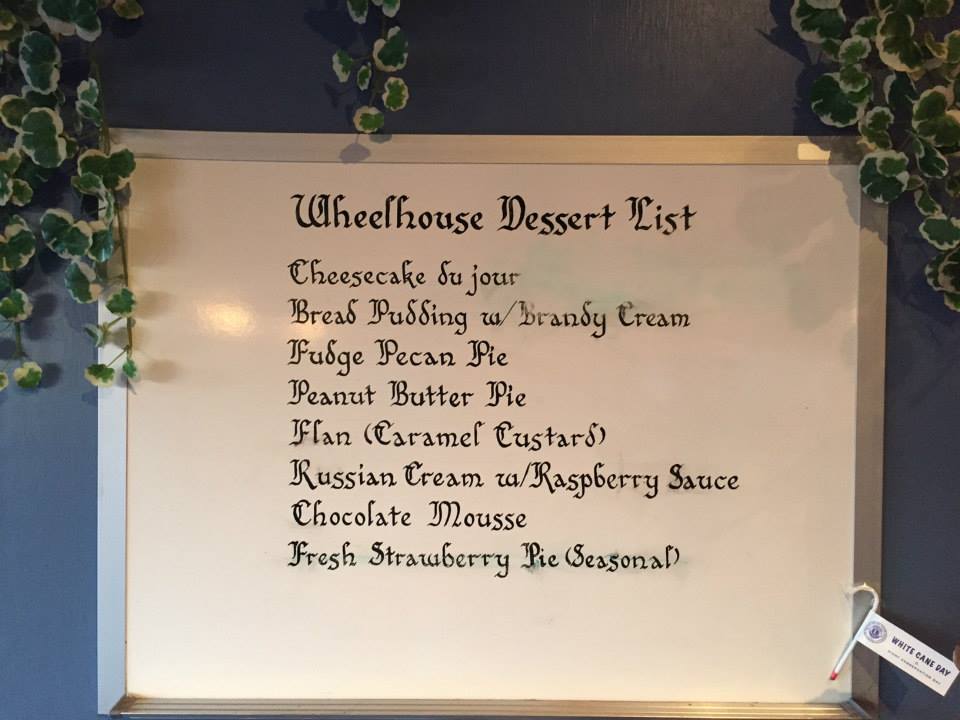 Wheelhouse Dessert List
Cheesecake du jour
Bread Pudding w/Brandy Cream
Fudge Pecan Pie
Peanut Butter Pie
Flan (Caramel Custard)
Russian Cream w/Raspberry Sauce
Chocolate Mousse
Fresh Strawberry Pie (Seasonal)
WHITE CANE DAY
SIGHT CONSERVATION DAY